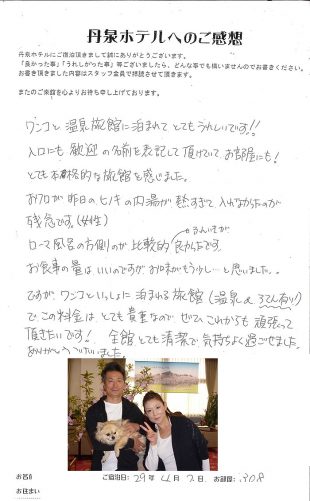 丹泉ホテルへのご感想
丹泉ホテルにご宿泊頂きまして誠にありがとうございます。
「良かった事」「うれしかった事」等ございましたら、どんな事でも構いませんのでお書きください。
お書き頂きました内容はスタッフ全員で拝読させて頂きます。
またのご来館を心よりお待ち申し上げております。
ワンコと温泉旅館に泊まれてとてもうれしいです!!
入口にも歓迎の名前を表記して頂けていてお部屋にも!
とても本格的な旅館を感じました。
お風呂が昨日のヒノキの内湯が熱すぎて入れなかったのが
残念です。(女性)
ローマ風呂の方側のが比較的良かったです。
お食事の量はいいのですがお味がもう少し…と思いました。
ですが、ワンコといっしょに泊まれる旅館(温泉&
で、この料金はとても貴重なので ぜひ、これからも頑張って
頂きたいです! 全館とても清潔で気持ちよく過ごせました。
ありがとうございました。
お名前
ご宿泊日: 29年 4月 2日 お部屋: 308
お住まい